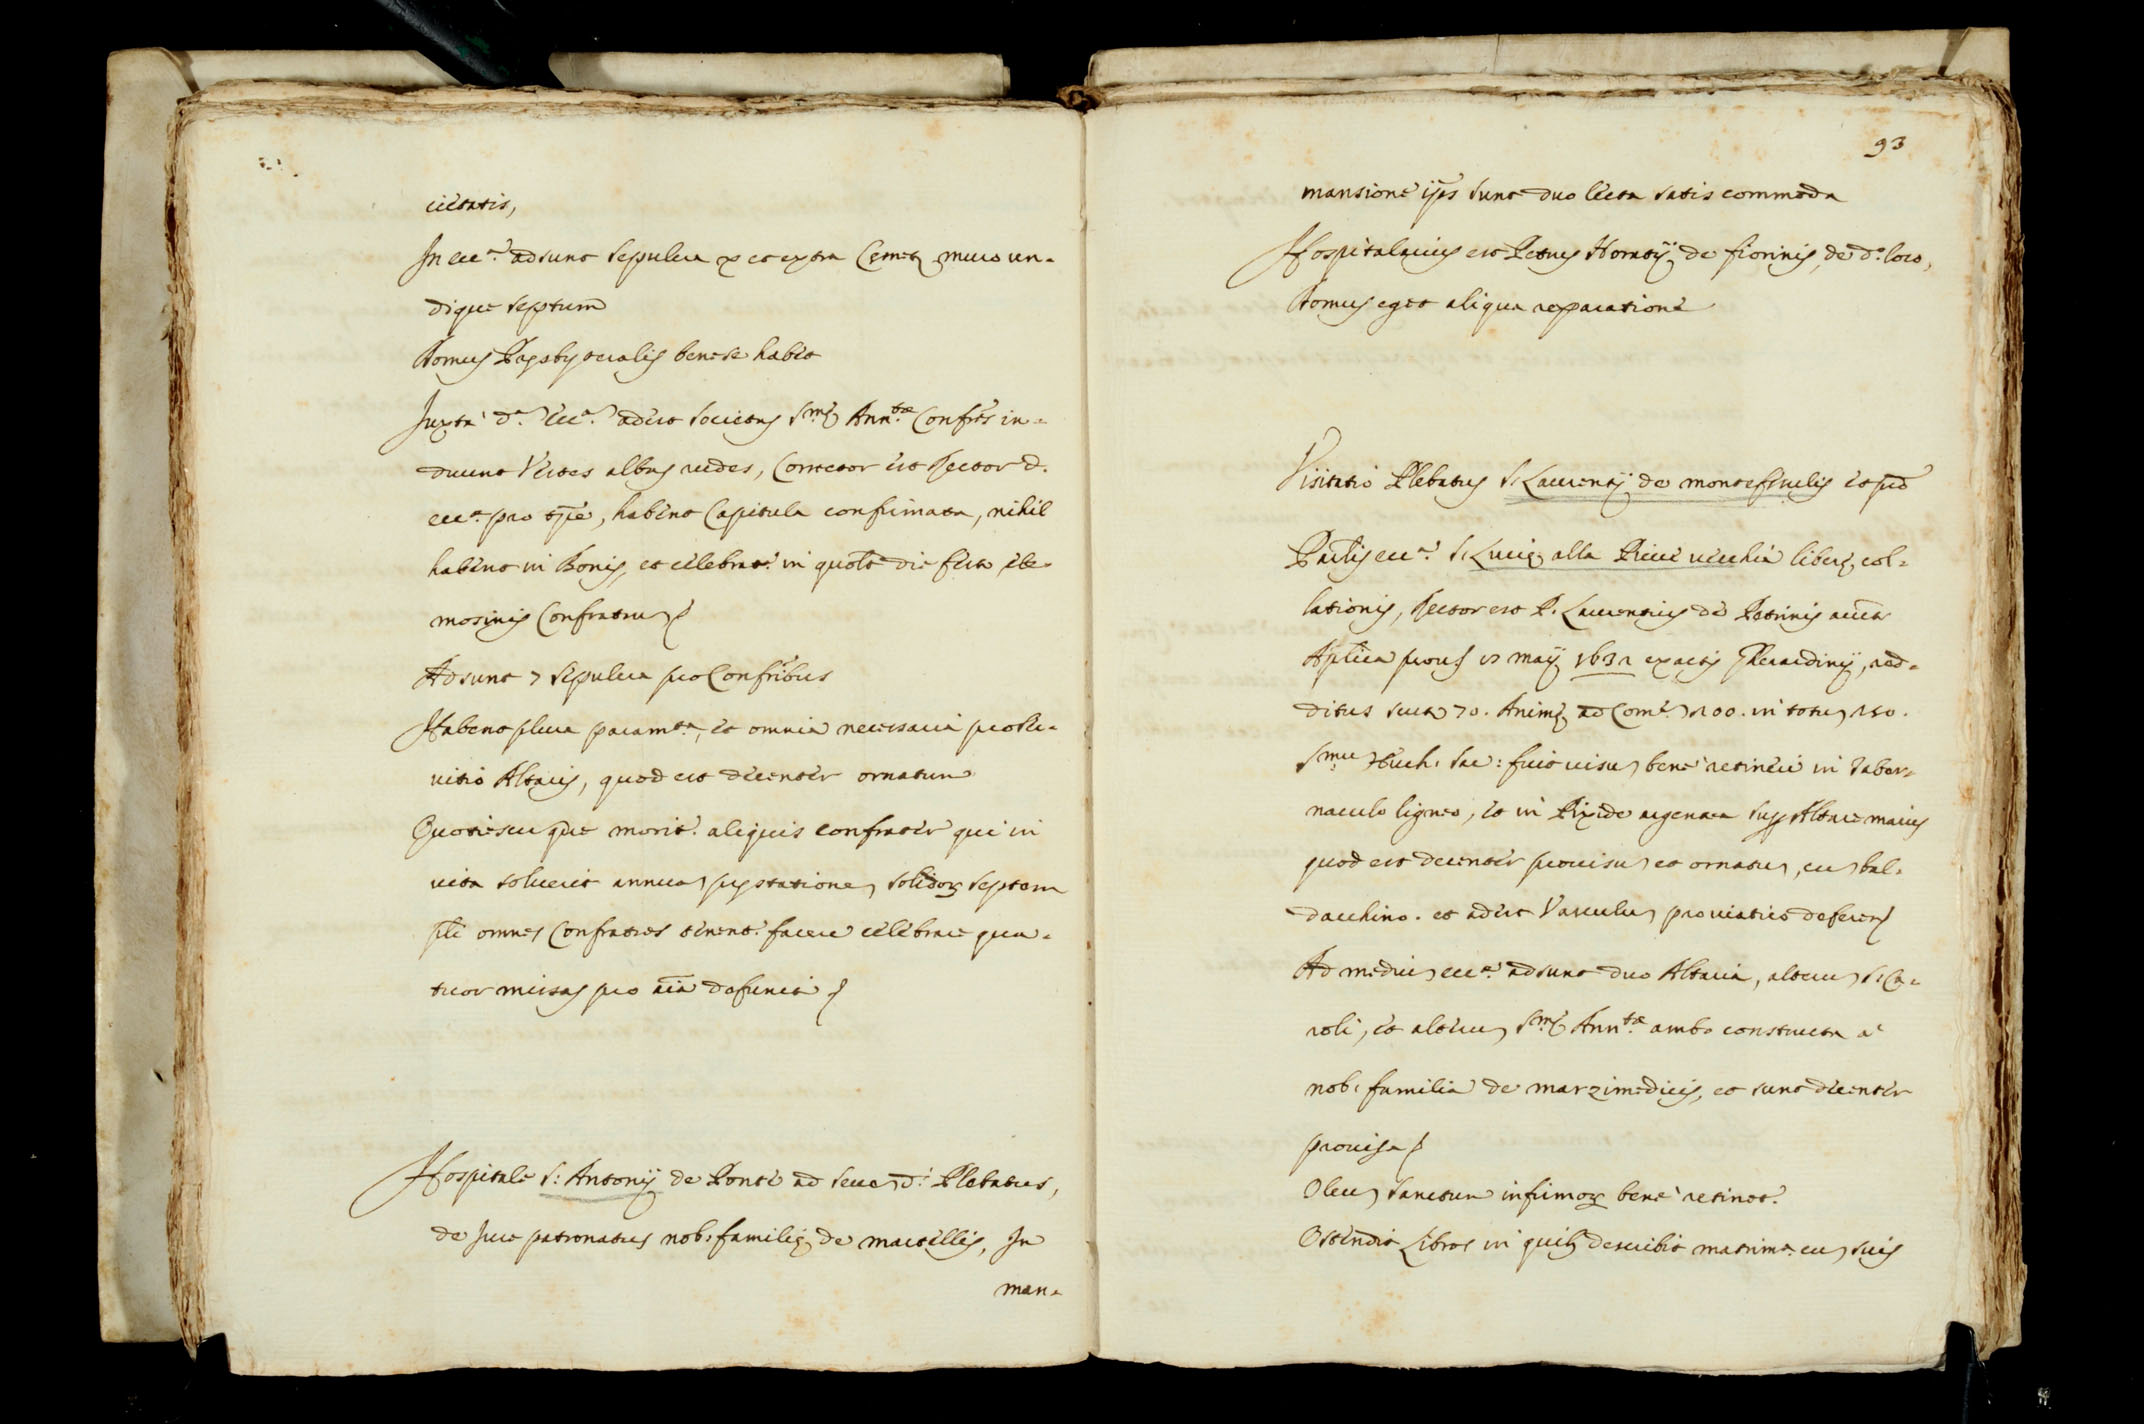 cietatis,
In ecc.ª adsunt sepulcra x et extra Cemet. muro un-
dique septum
Domus Presbyteralis bene se habet
Juxta d.ª ecc.ª adest societas S.mę Ann.tæ Confres in-
duunt Vestes albas rudes, Corrector est Rector d.
ecc.ª pro tpe, habent Capitula confirmata, nihil
habent in Bonis, et celebrat. in quolt die festo ele-
mosinis Confratrum
Adsunt 7 sepulcra pro Confribus
Habent plura param.ta, et omnia necessaria pro ser-
vitio Altaris, quod est decenter ornatum
Quotiescumque morit. aliquis confrater qui in
vita solverit annuam prestationem solidorum septem
omnes Confratres tenent. facere celebrare qua-
tuor missas pro aia defuncti
Hospitale S: Antonij de Ponte ad Sevem d.i Plebatus,
de Jure patronatus nob: familię de martellis, In
man-
93
mansione ijs sunt duo lecta satis commoda
Hospitalarius est Petrus Horatij de fiorinis, de d.º loco,
Domus eget aliqua reparatione
Visitatio Plebatus S. Laurentij de montefesulis et
Parlis ecc.ª S. Lucię alla Pieve vecchia liberę col-
lationis, Rector est P. Laurentius de Petrinis auctte
Aplica maij 1632 Gherardinij, red-
ditus scuta 70. Animę ad Com.em 100. in totum 150.
S.mum Euch: Sac: fuit visum bene retineri in Taber-
naculo ligneo, et in Pixide argentea super Altare maius
quod est decenter provisum et ornatum, cum bal-
dacchino. et adest Vasculum pro viatico deferen
Ad medium ecc.ª adsunt duo Altaria, alterum S. Ca-
roli, et alterum S.mę Ann.tæ ambo constructa a
nob: familia de marzimedicis, et sunt decenter
provisa
Oleum sanctum infirmorum bene retinet.
Ostendit Libros in quibus describit matrim.ª cum suis